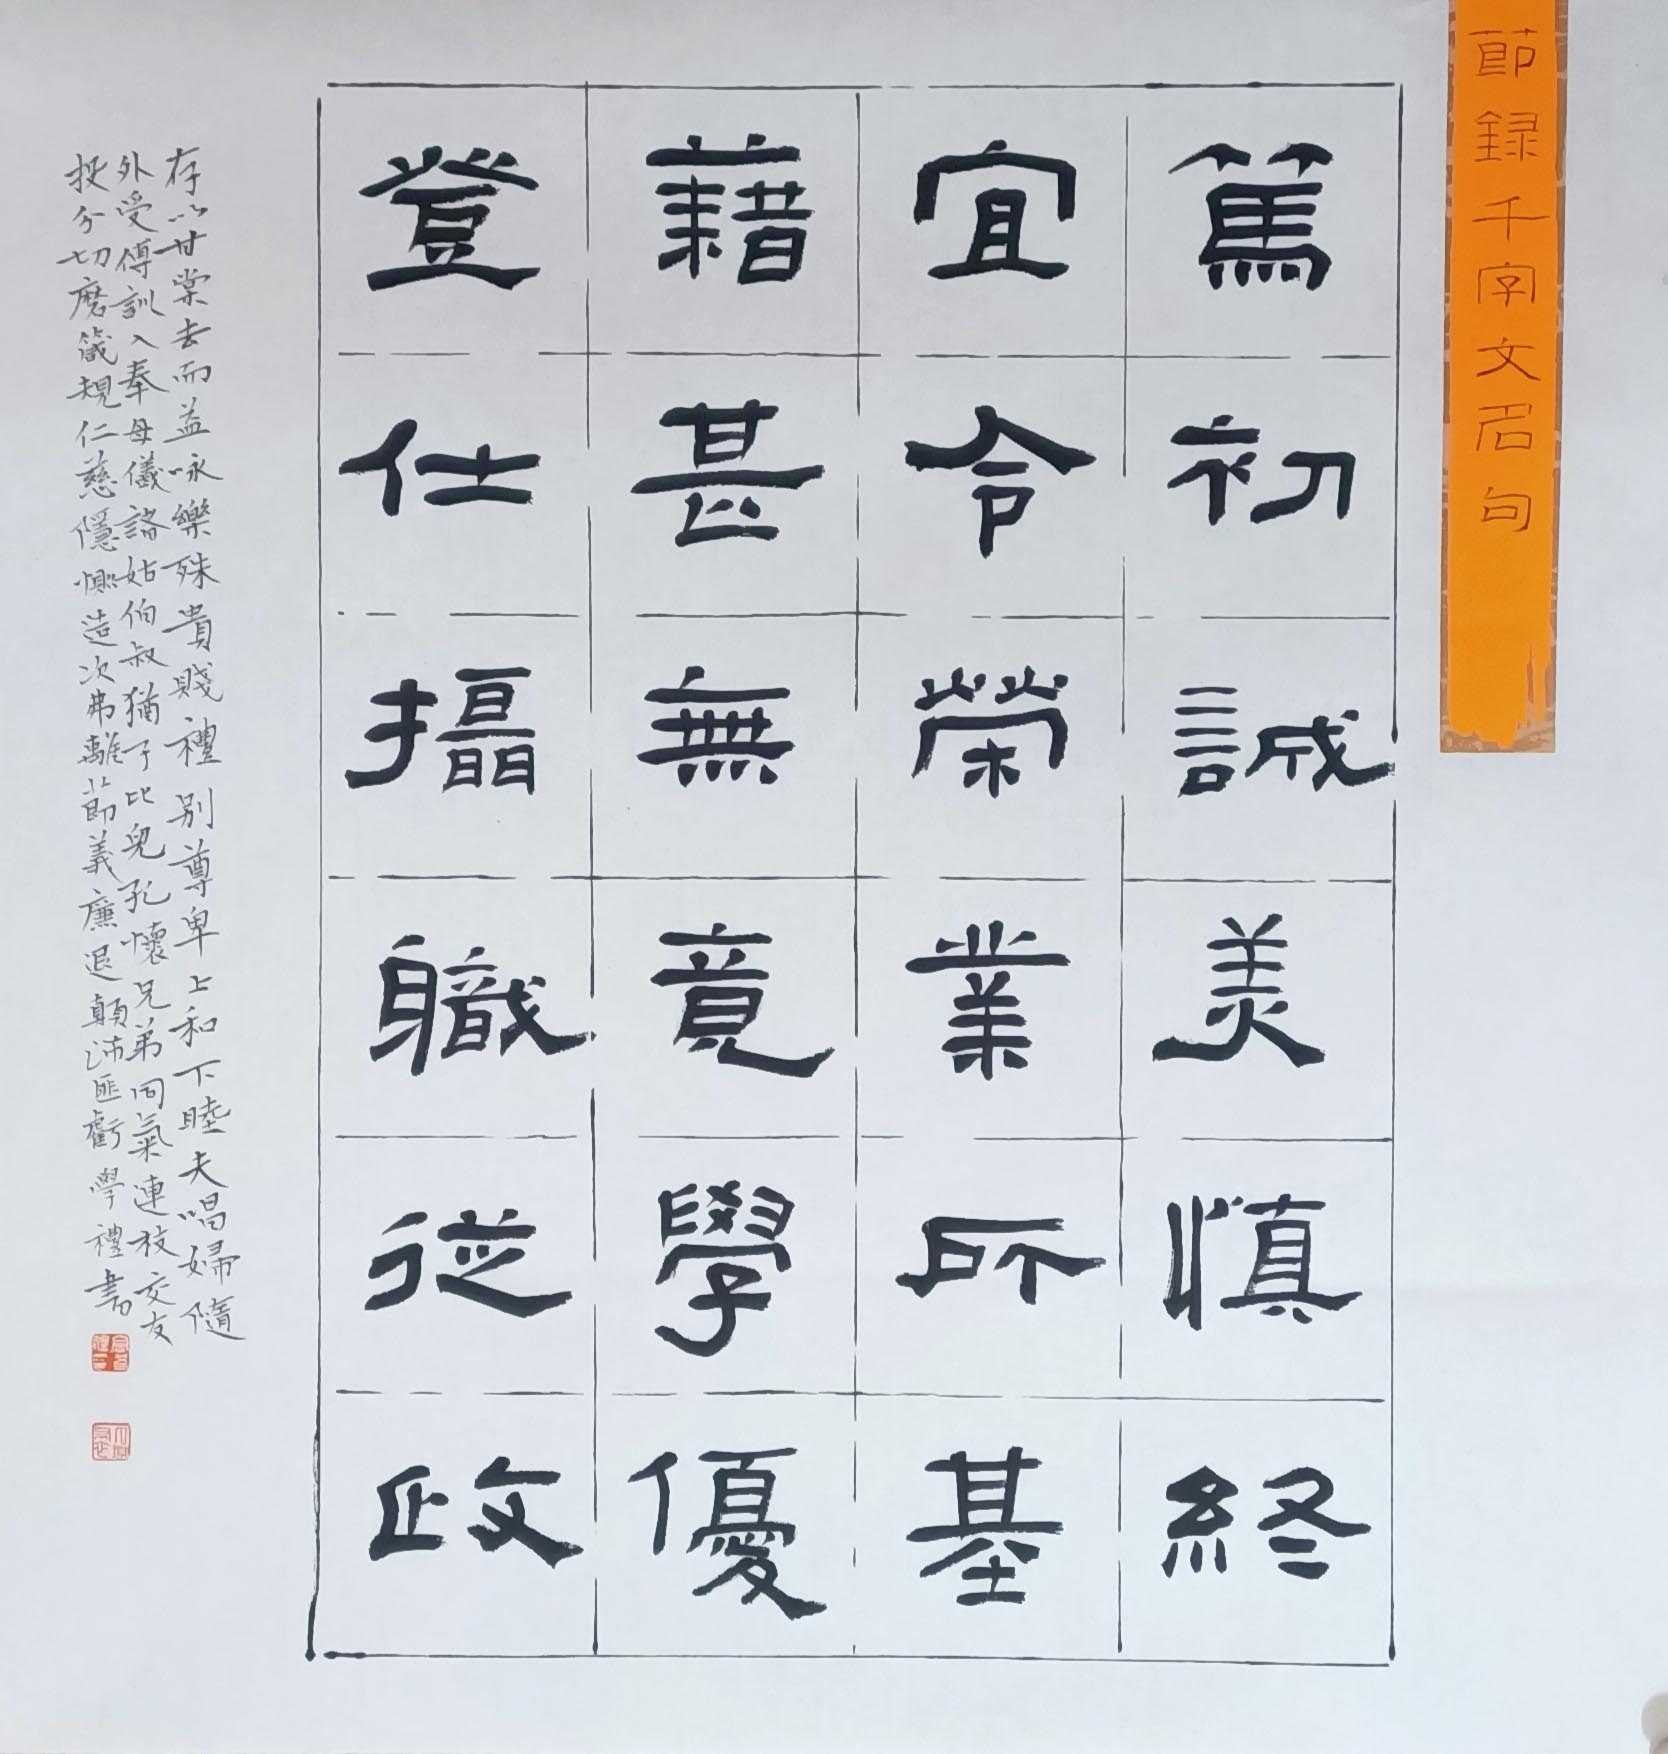 節録千字文名句
篤初誠美慎終
宜令榮業所基
藉甚無竟學優
登仕攝職從政
存以甘棠去而益咏樂殊貴賤禮别尊卑上和下睦夫唱婦隨
外受傅訓入奉母儀諸姑伯叔猶子比兒孔懷兄弟同氣連枝交友
投分切磨箴規仁慈隱惻造次弗離節義廉退顛沛匪虧學禮書